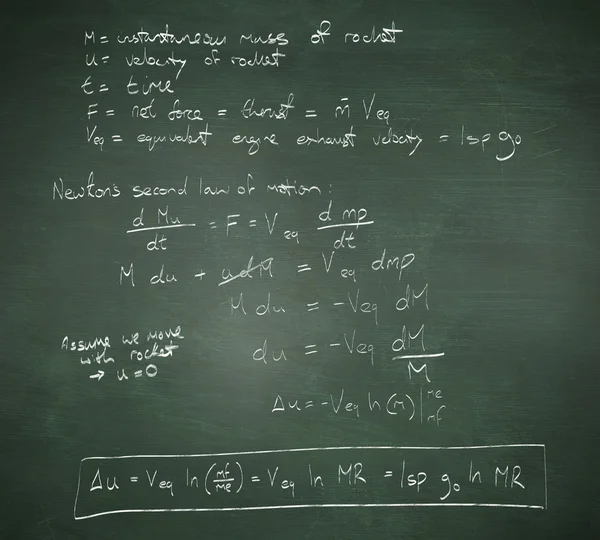 M = instantaneous mass of rocket
u = velocity of rocket
t = time
F = net force = thrust = ṁ Veq
Veq = equivalent engine exhaust velocity = Isp g0
Newton's second law of motion:
d Mu / dt = F = Veq d mp / dt
M du + u dM = Veq dmp
M du = -Veq dM
Assume we move
with rocket
→ u = 0
du = -Veq dM / M
Δu = -Veq ln (M) | me mf
Δu = Veq ln (mf/me) = Veq ln MR = Isp g0 ln MR